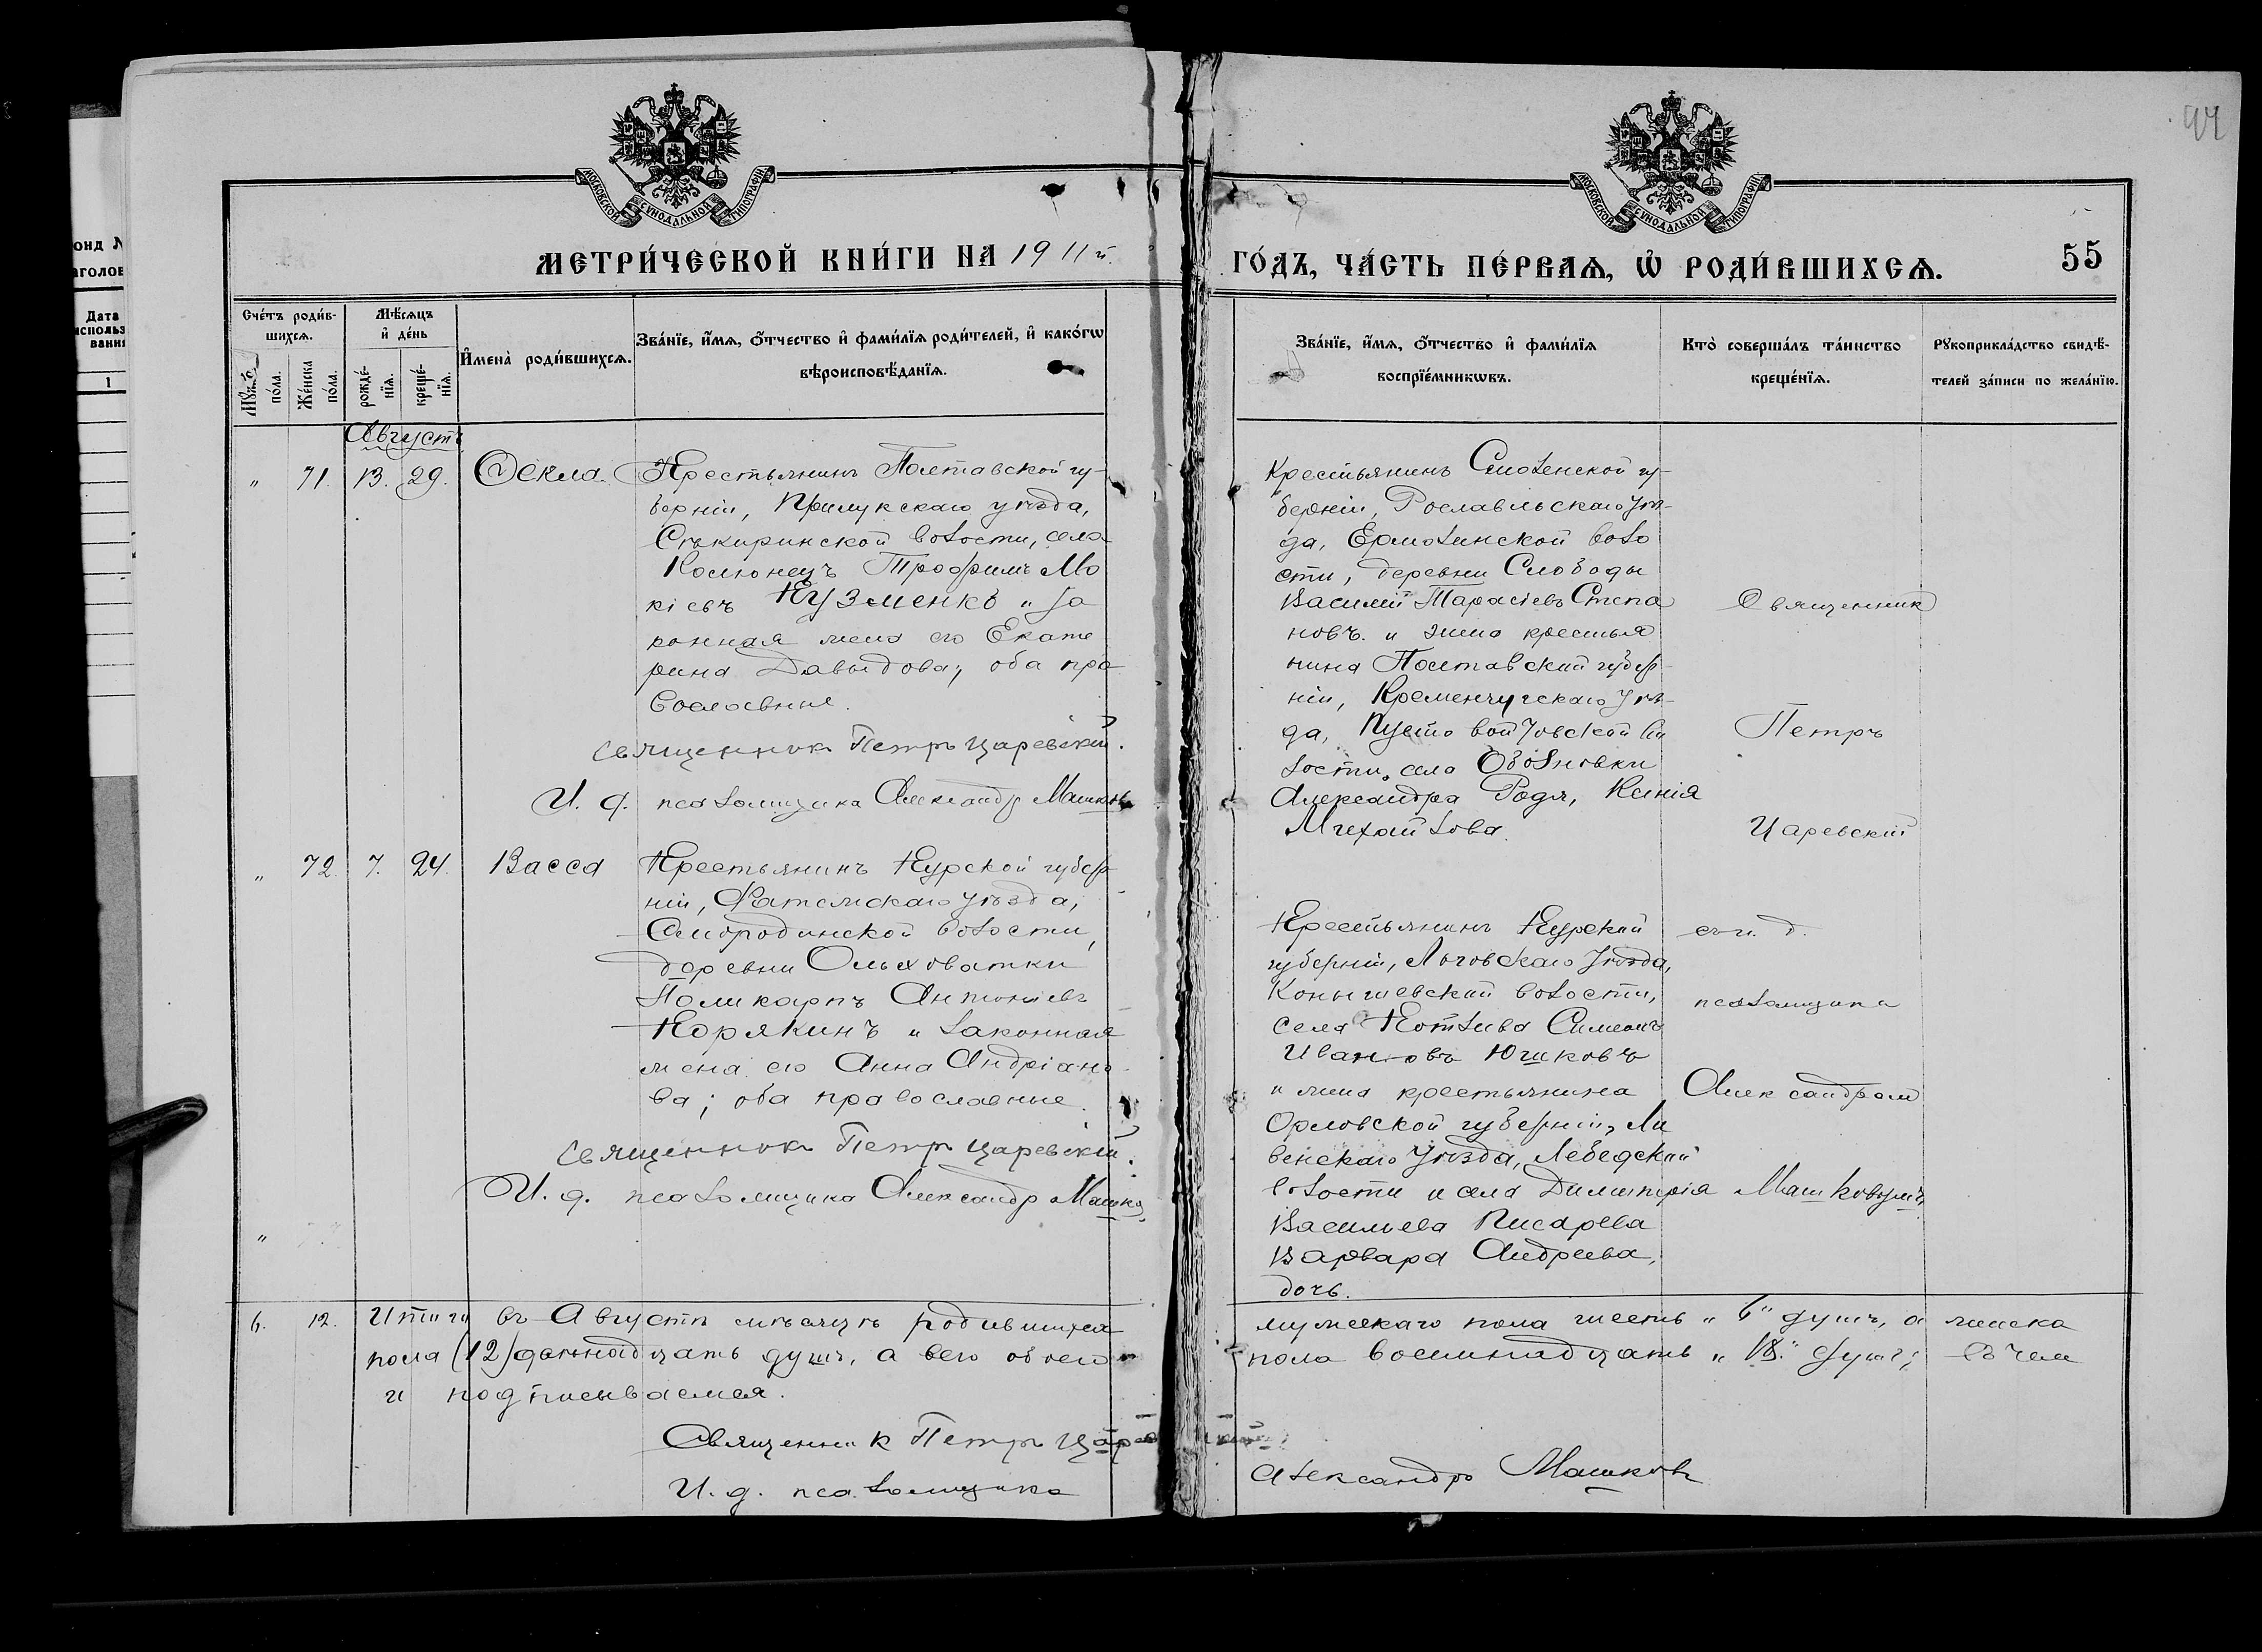 94
МОСКОВСКОЙ СУНОДАЛЬНОЙ ТИПОГРАФІИ
МОСКОВСКОЙ СУНОДАЛЬНОЙ ТИПОГРАФІИ
МЕТРИ́ЧЕСКОЙ КНИ́ГИ НА 1911 й.
ГО́ДЪ, ЧА́СТЬ ПЕ́РВАѦ, Ѡ РОДИ́ВШИХСѦ.
55
Сче́тъ роди́в-
шихсѧ.
Мѣ́сѧцъ
и҆ де́нь
Мꙋ́жска
по́ла.
Же́нска
по́ла.
рожде́-
нїѧ.
креще́-
нїѧ.
И҆мена̀ роди́вшихсѧ.
Зва́нїе, и҆́мѧ, ѻ҆́тчество и҆ фами́лїѧ роди́телей, и҆ како́гѡ
вѣроисповѣ́данїѧ.
Зва́нїе, и҆́мѧ, ѻ҆́тчество и҆ фами́лїѧ
воспрїе́мникѡвъ.
Кто̀ соверша́лъ та́инство
креще́нїѧ.
Рꙋкоприкла́дство свидѣ́-
телей за́писи по жела́нїю.
онд №
аголов
Дата
использ
вания
1
Августъ
" 71. 13. 29. Ѳекла.
Крестьянинъ Полтавской гу-
берніи, Прилукскаго уѣзда,
Сѣкиринской волости, села
Трофимъ Мо
кіевъ Кузменко и за
конная жена его Екате
рина Давыдова, оба пра
вославные.
Священникъ Петръ Царевскій.
И. д. псаломщика Александръ Машковъ
Крестьянинъ Смоленской гу-
берніи, Рославльскаго уѣз-
да, Ермолинской воло
сти, деревни Слободы
Василій Тарасіевъ Степа
новъ и жена крестья
нина Полтавской губер-
ніи, Кременчугскаго уѣз-
да, Пустовойтовской во
лости, села Обозновки
Александра Родя, Ксенія
Михайлова.
Священник
Петръ
Царевскій
" 72. 7. 24. Васса
Крестьянинъ Курской губер
ніи, Фатежскаго уѣзда,
Смородинской волости,
деревни Ольховатки
Поликарпъ Антоніевъ
Корякинъ и законная
жена его Анна Андріано-
ва; оба православные.
Священникъ Петръ Царевскій.
И. д. псаломщика Александръ Машковъ
"
Крестьянинъ Курской
губерніи, Льговскаго уѣзда,
Конышевской волости,
села Котлева Симеонъ
Ивановъ Юшковъ
и жена крестьянина
Орловской губерніи, Ли
венскаго уѣзда, Лебедской
волости и села Димитрія
Васильева Писарева
Варвара Андреева,
дочь.
съ и. д.
псаломщика
Александром
Машковымъ
6. 12. Итого въ Августѣ мѣсяцѣ родившихся
мужескаго пола шесть „6" душъ, а женска
пола (12) двѣнадцать душъ, а всего обоего
пола восемнадцать „18." душъ; въ чем
и подписываемся.
Священник Петръ Царевскій
И. д. псаломщика
Александръ Машковъ